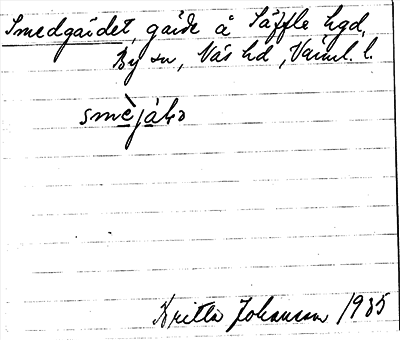 Smedgärdet, gärde å Säffle hgd,
By sn, Näs hd, Värml. l.
smèjáḷə
Britta Johansson 1935